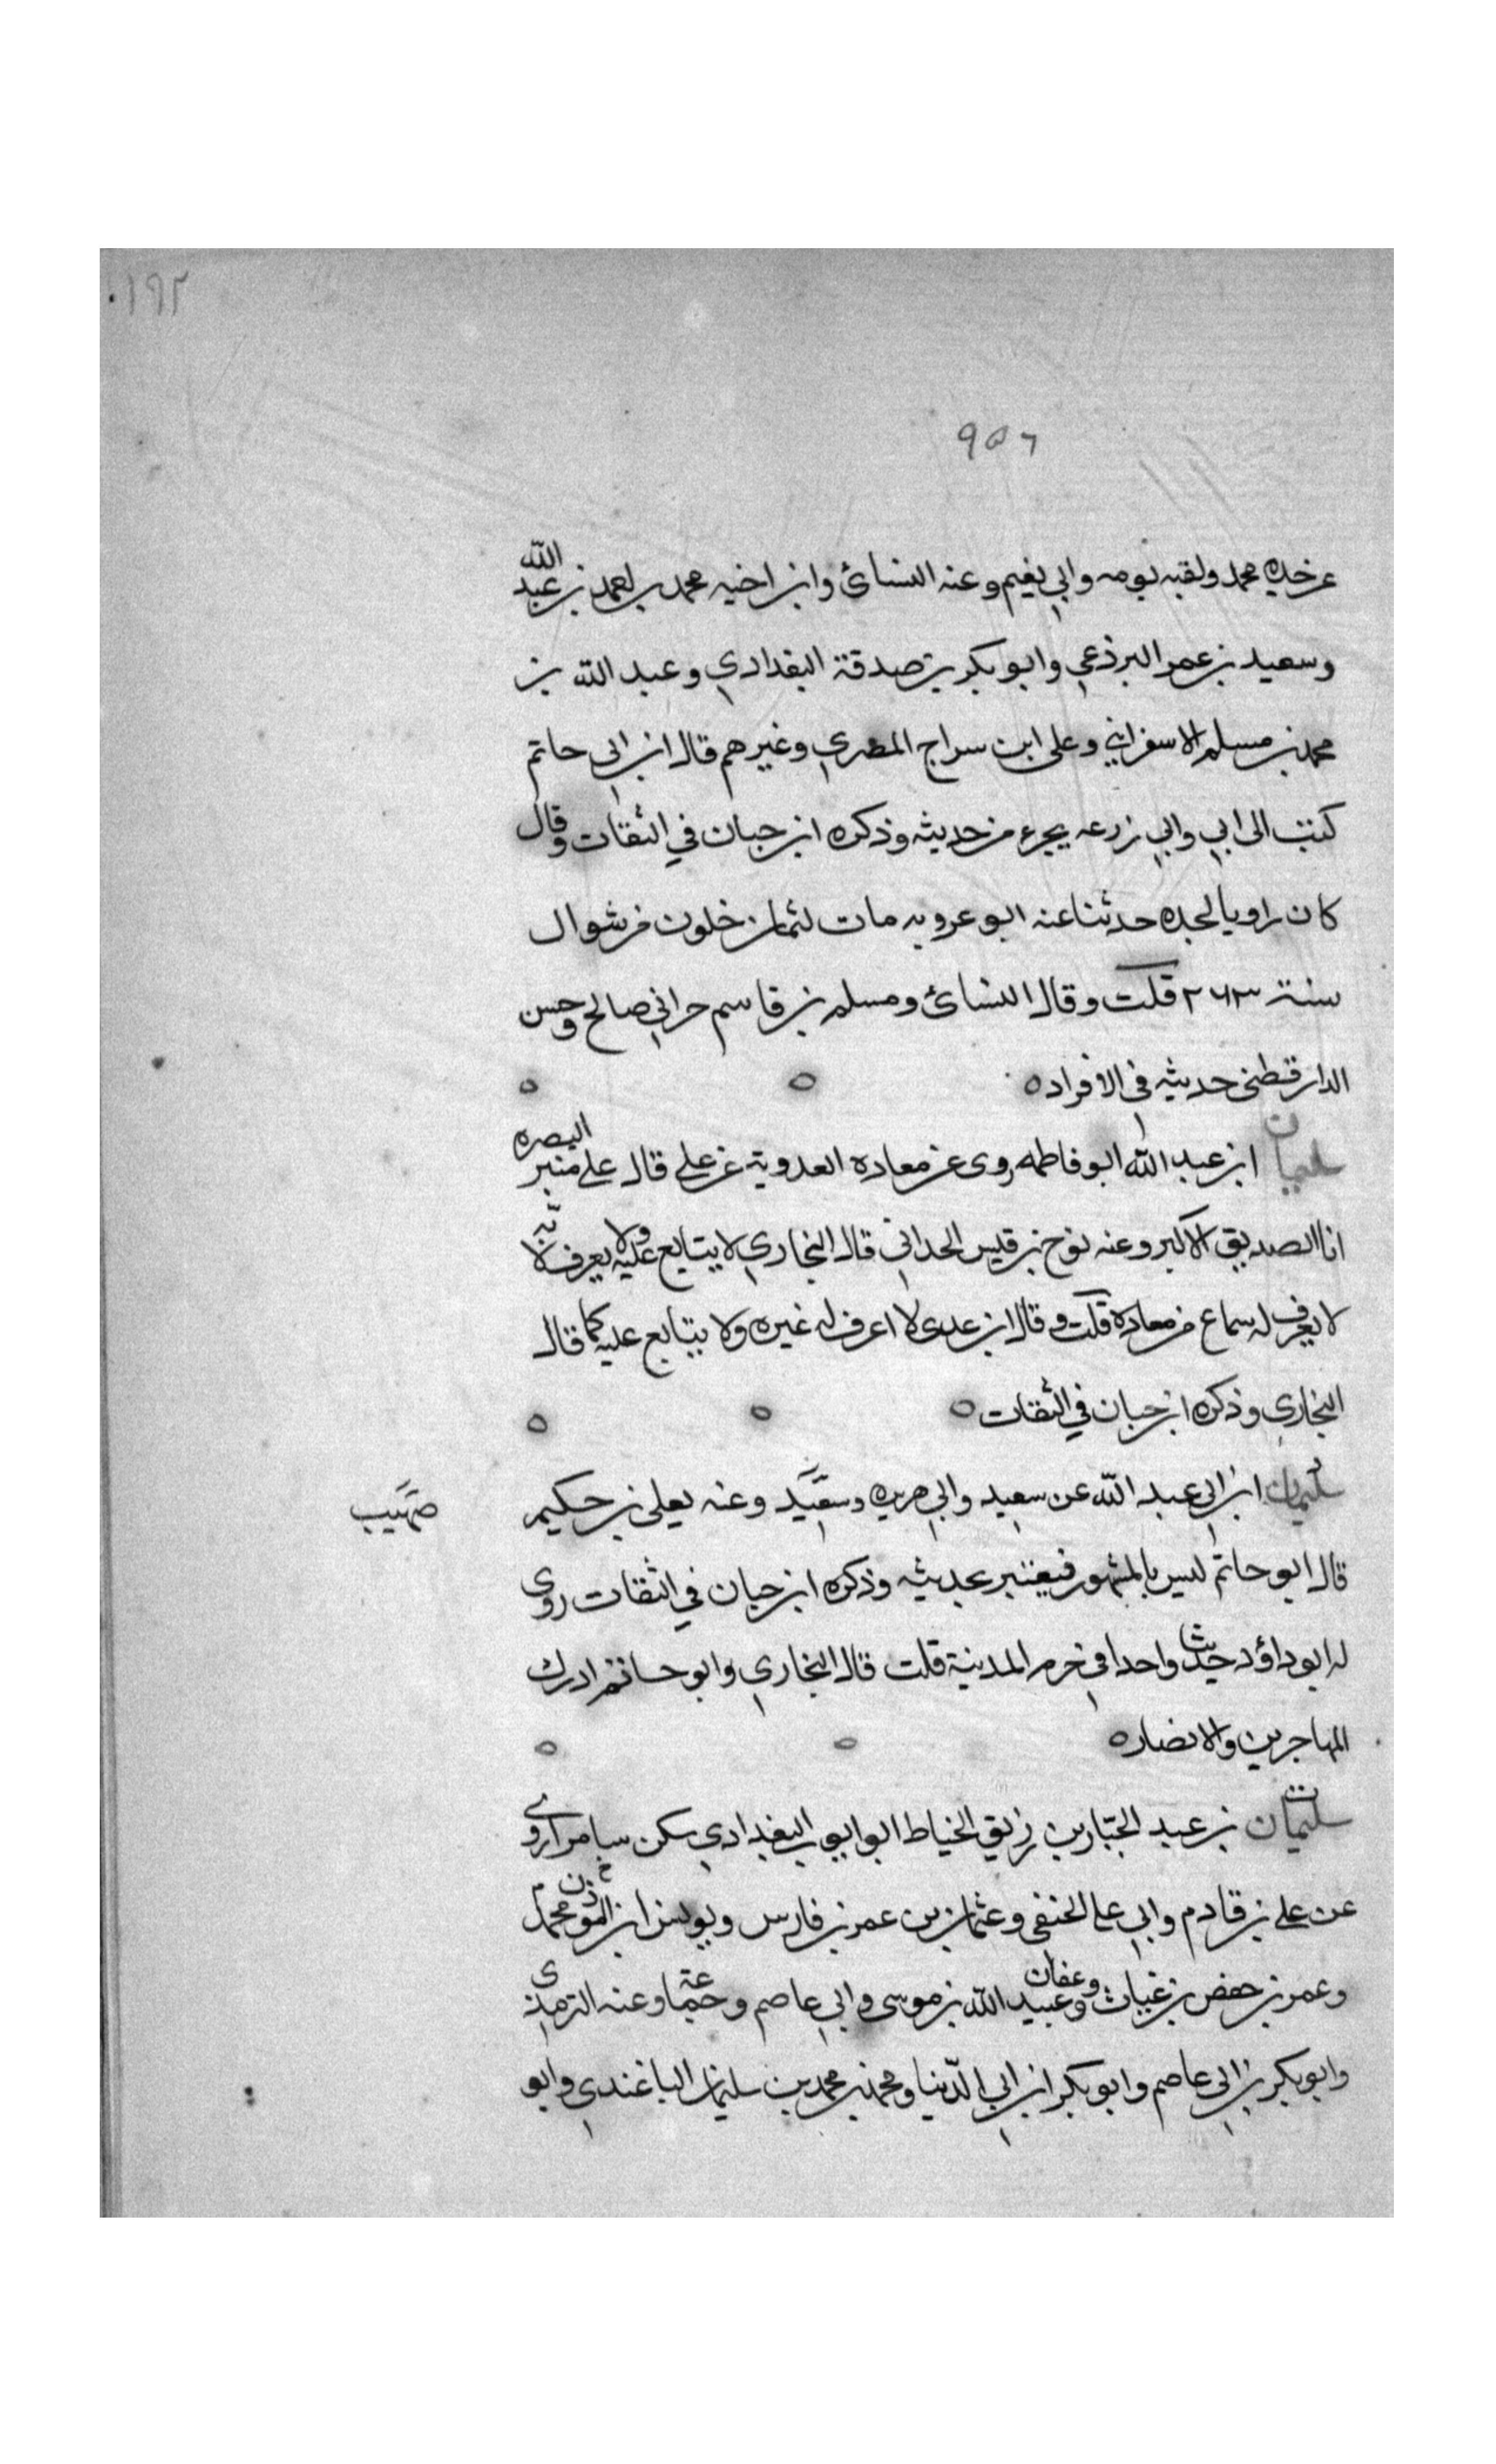 ١٩٢
٩٥٦
عن جده محمد ولقبه بومه وابي نعيم وعنه النسائ وابن اخيه محمد بن احمد بن عبد الله
وسعيد بن عمر البرذعي وابو بكر بن صدقة البغدادي وعبد الله بن
محمد بن مسلم الاسفرايني وعلى ابن سراج المصري وغيرهم قال ابن ابي حاتم
كتب الى ابي وابي زرعه بجزء من حديثه وذكره ابن حبان في الثقات وقال
كان راويا لجده حدثنا عنه ابو عروبه مات لثمان خلون من شوال
سنة ٢٦٣ قلت وقال النسائ ومسلم بن قاسم حراني صالح وحسن
الدارقطنى حديثه في الافراد ه
سليمان ابن عبد الله ابو فاطمه روى عن معاده العدوية عن علي قال على منبر البصره
انا الصديق الاكبر وعنه نوح بن قيس الحداني قال البخاري لا يتابع عليه ولا يعرف لانه
لا يعرف له سماع من معاده قلت وقال ابن عدى لا اعرف له غيره ولا يتابع عليه كما قال
البخاري وذكره ابن حبان في الثقات ه
سليمان ابن ابي عبد الله عن سعيد وابي هريره وسعيد وعنه يعلى بن حكيم
صهيب
قال ابو حاتم ليس بالمشهور فيعتبر بحديثه وذكره ابن حبان في الثقات روى
له ابو داؤد حديثا واحدا في حرم المدينة قلت قال البخاري وابو حاتم ادرك
المهاجرين والانصار ه
سليمان بن عبد الجبار بن زريق الخياط ابو ايوب البغدادي سكن سامرا روى
عن علي بن قادم وابي علي الحنفي وعثمان بن عمر بن فارس ويونس ابن محمد المؤذن
وعمر بن حفص بن غياث وعفان وعبيد الله بن موسى وابي عاصم وجماعة وعنه الترمذي
وابو بكر بن ابي عاصم وابو بكر ابن ابي الدنيا ومحمد بن محمد بن سليمان الباغندي وابو